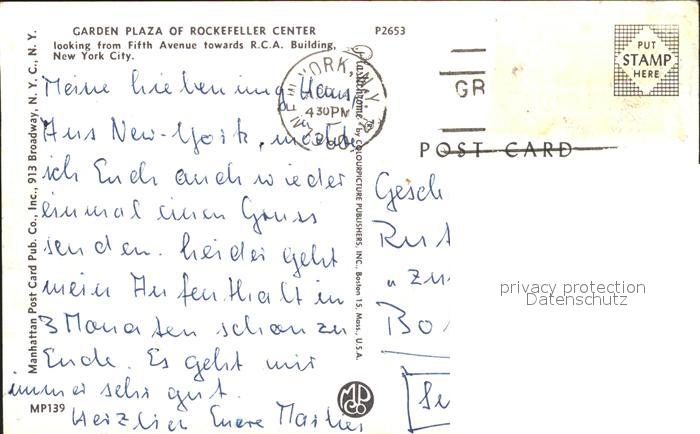 GARDEN PLAZA OF ROCKEFELLER CENTER
looking from Fifth Avenue towards R.C.A. Building,
New York City.
P2653
PUT
STAMP
HERE
NEW YORK, N.Y.
430PM
GR
POST CARD
Meine lieben
Aus New-York, möchte
ich Euch auch wieder
einmal einen Gruss
senden. Leider geht
mein Aufenthalt in
3 Monaten schon zu
Ende. Es geht mir
immer sehr gut.
Herzlich Euere
Gesch
"Zu
Bo
Manhattan Post Card Pub. Co., Inc., 913 Broadway, N. Y. C., N. Y.
Plastichrome ® by COLOURPICTURE PUBLISHERS, INC., Boston 15, Mass., U.S.A.
MP139
privacy protection
Datenschutz